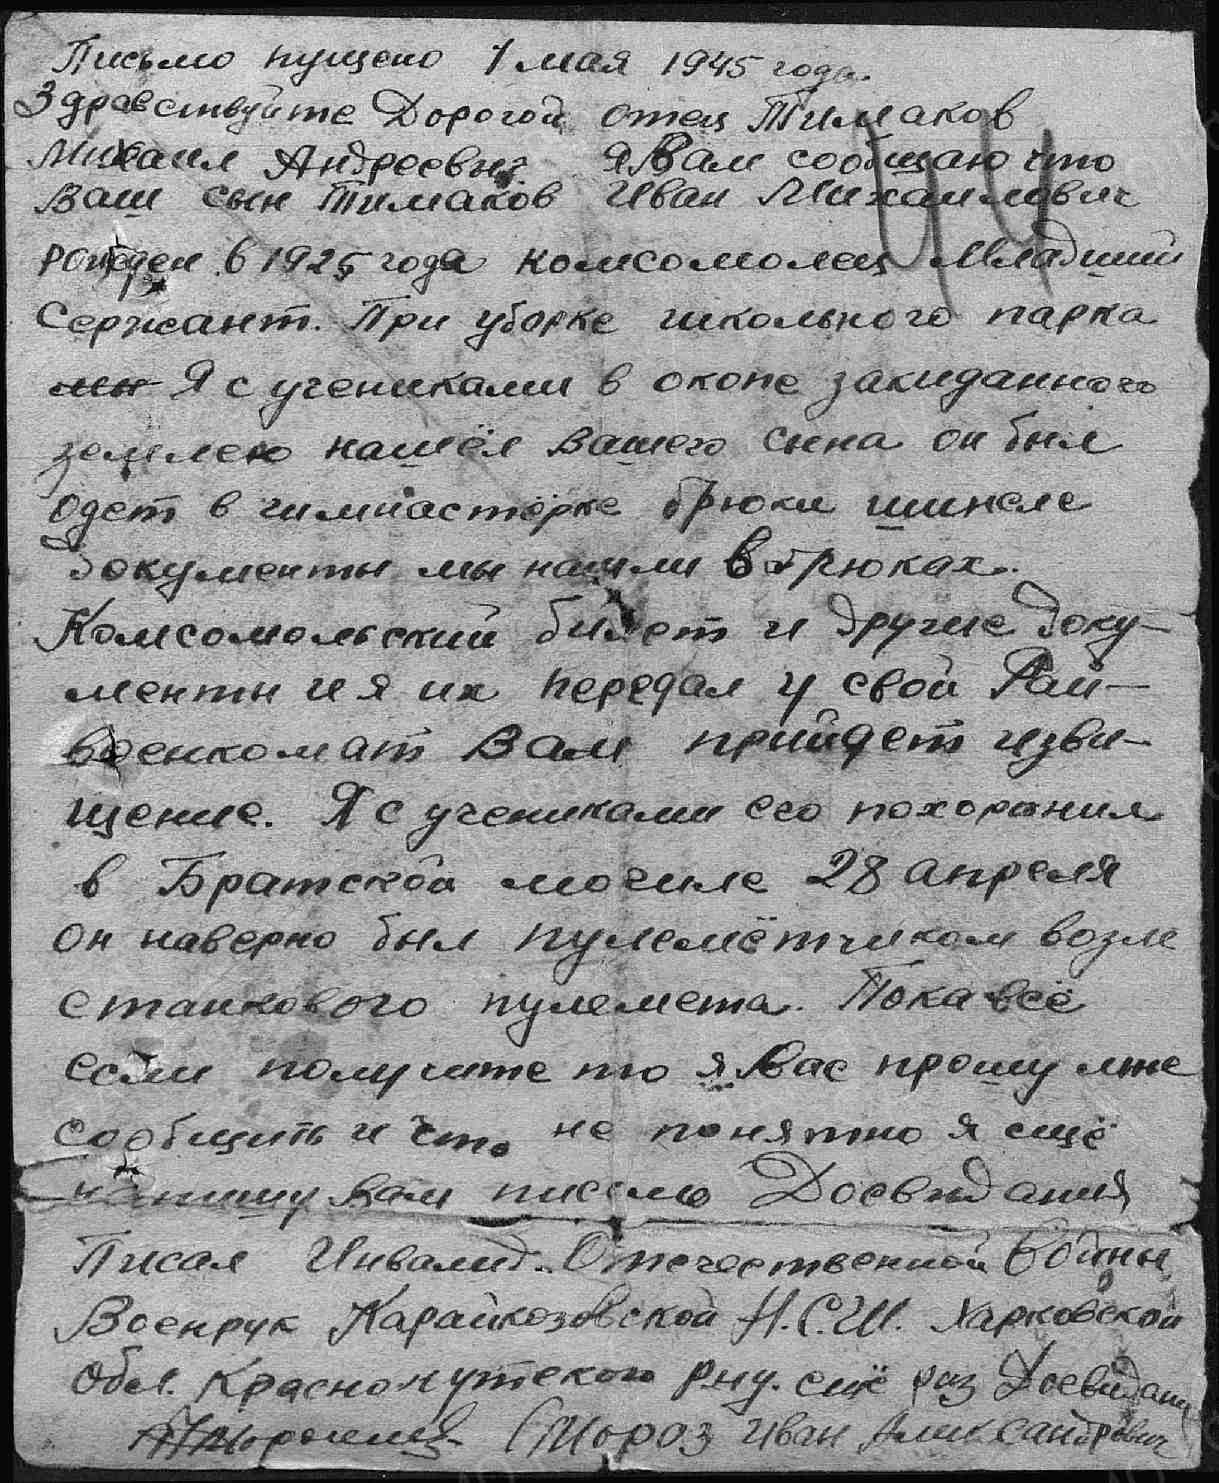 Письмо пущено 1 мая 1945 года.
Здравствуйте Дорогой отец Тимаков
Михаил Андреевич я Вам сообщаю что
Ваш сын Тимаков Иван Михаилович
рожден в 1925 года комсомолец Младший
Сержант. При уборке школьного парка
мы Я с учениками в окопе закиданного
землею нашёл Вашего сына он был
одет в гимнастёрке брюки шинеле
документы мы нашли в брюках.
Комсомольский билет и другие доку-
менты и я их передал у свой Рай-
военкомат Вам прийдет изви-
щение. Я с учениками его похоронил
в Братской могиле 28 апреля
он наверно был пулемётчиком возле
станкового пулемета. Пока всё
если получите то я Вас прошу мне
сообщить и что не понятно я ещё
напишу Вам письмо Досвидания
Писал Инвалид. Отечественной Войны
Военрук Карайкозовской Н.С.Ш. Харковской
обл. Краснокутского р-ну. ещё раз Досвидания
(Мороз Иван Александрович
44